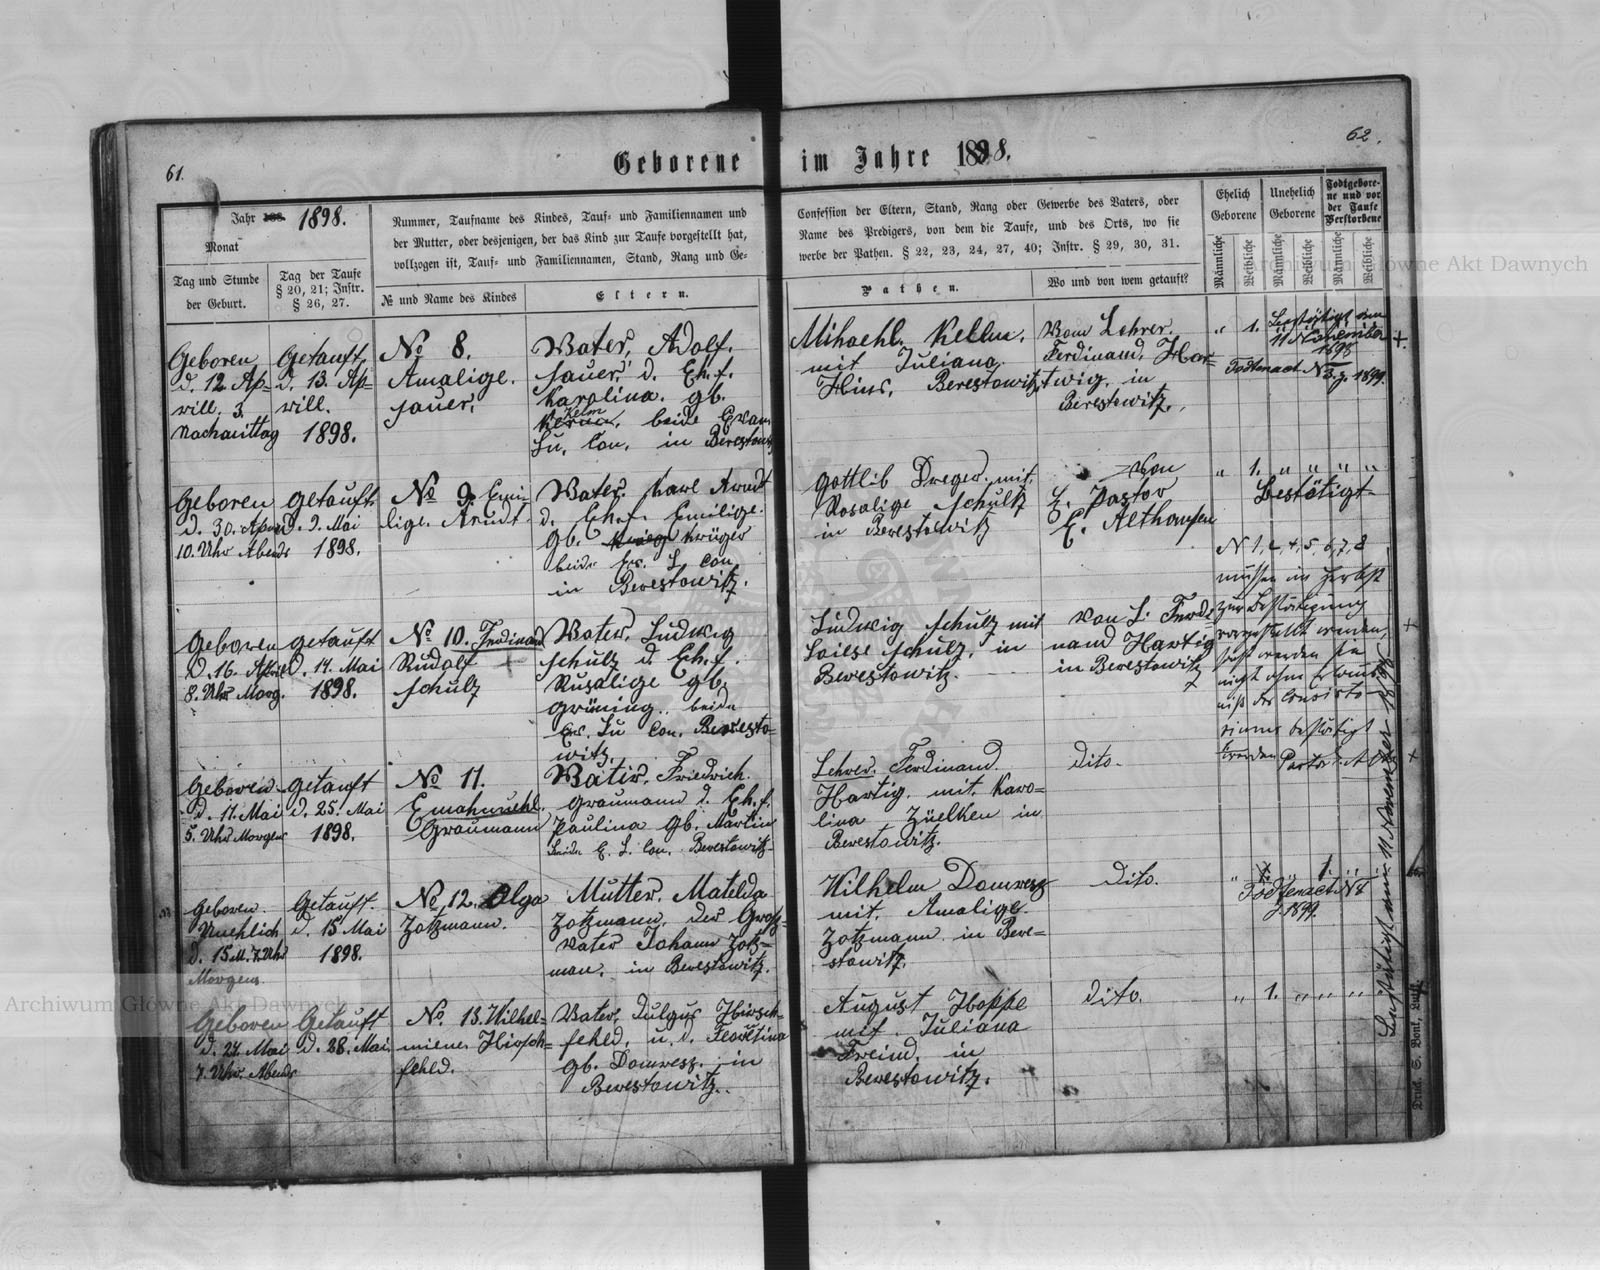 61.
Geborene im Jahre 1898.
62.
Jahr 1898.
Monat
Tag und Stunde
der Geburt.
Tag der Taufe
§ 20, 21; Instr.
§ 26, 27.
Nummer, Taufname des Kindes, Tauf- und Familiennamen und
der Mutter, oder desjenigen, der das Kind zur Taufe vorgestellt hat,
vollzogen ist, Tauf- und Familiennamen, Stand, Rang und Ge-
№ und Name des Kindes
Eltern.
Confession der Eltern, Stand, Rang oder Gewerbe des Vaters, oder
Name des Predigers, von dem die Taufe, und des Orts, wo sie
werbe der Pathen. § 22, 23, 24, 27, 40; Instr. § 29, 30, 31.
Pathen.
Wo und von wem getauft?
Ehelich
Geborene
Unehelich
Geborene
Todtgebore-
ne und vor
der Taufe
Verstorbene
Männliche
Weibliche
Männliche
Weibliche
Männliche
Weibliche
Geboren
d. 12 Ap-
rill. 3.
Nachmittag
Getauft,
d. 13. Ap-
rill.
1898.
No 8.
Amalige.
Sauer,
Vater, Adolf.
Sauer, d. Eh. f.
Karolina. gb.
Kelm
beide Evan.
Lu. Con. in Berestowitz
Mihaehl. Kellm.
mit Juliana.
Hins. Berestowitz
Vom Lehrer.
Ferdinand, Har-
twig, in
Berestowitz.
" 1.
Bestätigt den
11 November
1898
Todtenact N 3. J. 1899.
+.
Geboren
d. 30. April
10. Uhr Abends
getauft
D. 9. Mai
1898.
No 9. Emi-
lige. Arndt.
Vater. Karl Arndt
d. Eh. f. Emilige.
gb. Krüger
beide Ev. L. Con.
in Berestowitz.
Gottlib Dreger. mit.
Rosalige Schultz
in Berestowitz
Von
H. Pastor
E. Althausen
" 1. " " " "
Bestätigt
N 1, 2, 4, 5, 6, 7, 8
müssen im Herbst
zur Bestätigung
vorgestellt werden,
werden
bestätigt
werden
Geboren
D. 16. April
8. Uhr Morg.
getauft
D. 14. Mai
1898.
No 10. Ferdinand
Rudolf +
Schulz
Vater. Ludwig
Schulz d. Eh. f.
Rusalige gb.
Grüning. beide
Ev. Lu Con. Beresto-
witz.
Ludwig Schulz mit
Loiese Schulz, in
Berestowitz.
Von L. Ferdi-
nand Hartig
in Berestowitz
+
Geboren
d. 11. Mai
5. Uhr Morgens
getauft
D. 25. Mai
1898.
No 11.
Emahnuehl.
Graumann
Vater. Friedrich.
Graumann d. Eh. f.
Paulina gb. Martin
beide E. L. Con. Berestowitz
Lehrer. Ferdinand
Hartig. mit Karo-
lina Züelken in
Berestowitz.
Dito.
+
Geboren.
Unehlich
d. 15 M. 7. Uhr
Morgens
Getauft.
d. 15 Mai
1898.
No 12. Olga
Zotzmann.
Mutter. Matelda
Zotzmann. der Gros-
vater Johann Zotz-
man. in Berestowitz.
Wilhelm Domresz
mit. Amalige
Zotzmann in Bere-
stowitz.
Dito.
1.
Todtenact N 4
J. 1899.
Geboren
d. 24. Mai
7. Uhr. Abends
Getauft
d. 28. Mai
No. 13. Wilhel-
miene Hirsch-
fehld.
Vater, Julgus Hirsch-
fehld, u. d. Floretina
gb. Domresz. in
Berestowitz.
August Hoppe
mit. Juliana
Freind. in
Berestowitz.
dito.
" 1. " " " "
Bestätigt am 11 November 1898
Druck. S. Bonf.
Archiwum Główne Akt Dawnych
Archiwum Główne Akt Dawnych